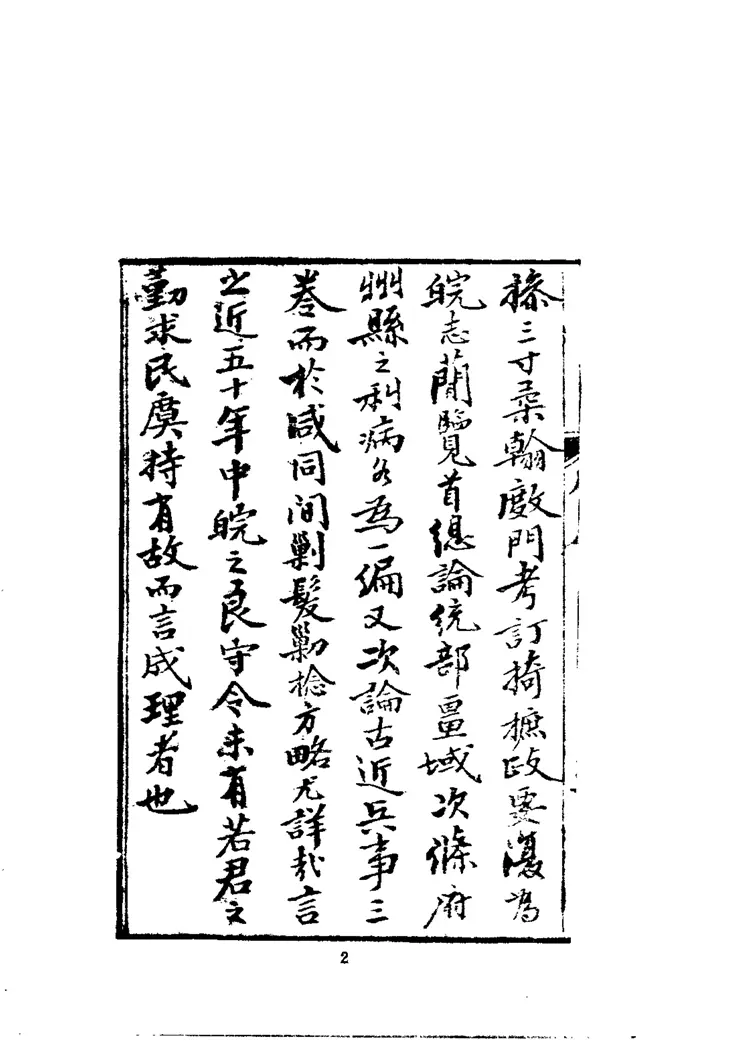 椽三寸柔翰敵門考訂掎摭政要濃為
皖志蕳覽首總論統部畺域次條府
州縣之利病各為一編又次論古近兵事三
卷而於咸同間剿髮剿捻方略尤詳哉言
之近五十年中皖之良守令未有若君之
勤求民瘼持有故而言成理者也
2